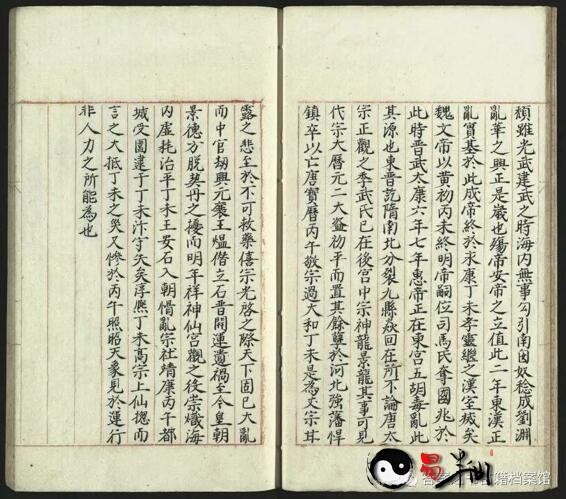 頹雖光武建武之時海內無事勾引南匈奴稔成劉淵
亂華之興正是歲也殤帝安帝之立值此二年東漢正
亂實基於此成帝終於永康丁未孝靈繼之漢室滅矣
魏文帝以黃初丙未終明帝嗣位司馬氏奪國兆於
此時晉武太康六年七年惠帝正在東宮五胡毒亂此
其源也東晉訖隋南北分裂九縣飆回在所不論唐太
宗正觀之季武氏已在後宮中宗神龍景龍其事可見
代宗大曆元二大盜初平而置其餘孽於河北強藩悍
鎮卒以亡唐寶曆丙午敬宗遇大和丁未是為文宗其
露之悲至於不可救藥僖宗光啓之際天下固已大亂
而中官劫興元襄王熅僭立石晉開運遺禍至今皇朝
景德方脫契丹之擾而明年祥神仙宮觀之役崇熾海
內虛耗治平丁未王安石入朝愲亂宗社靖康丙午都
城受圍逮于丁未汴宇失矣淳熙丁未高宗上仙揔而
言之大抵丁未之災又慘於丙午照昭天象見於運行
非人力之所能為也
易半仙
籍档案馆